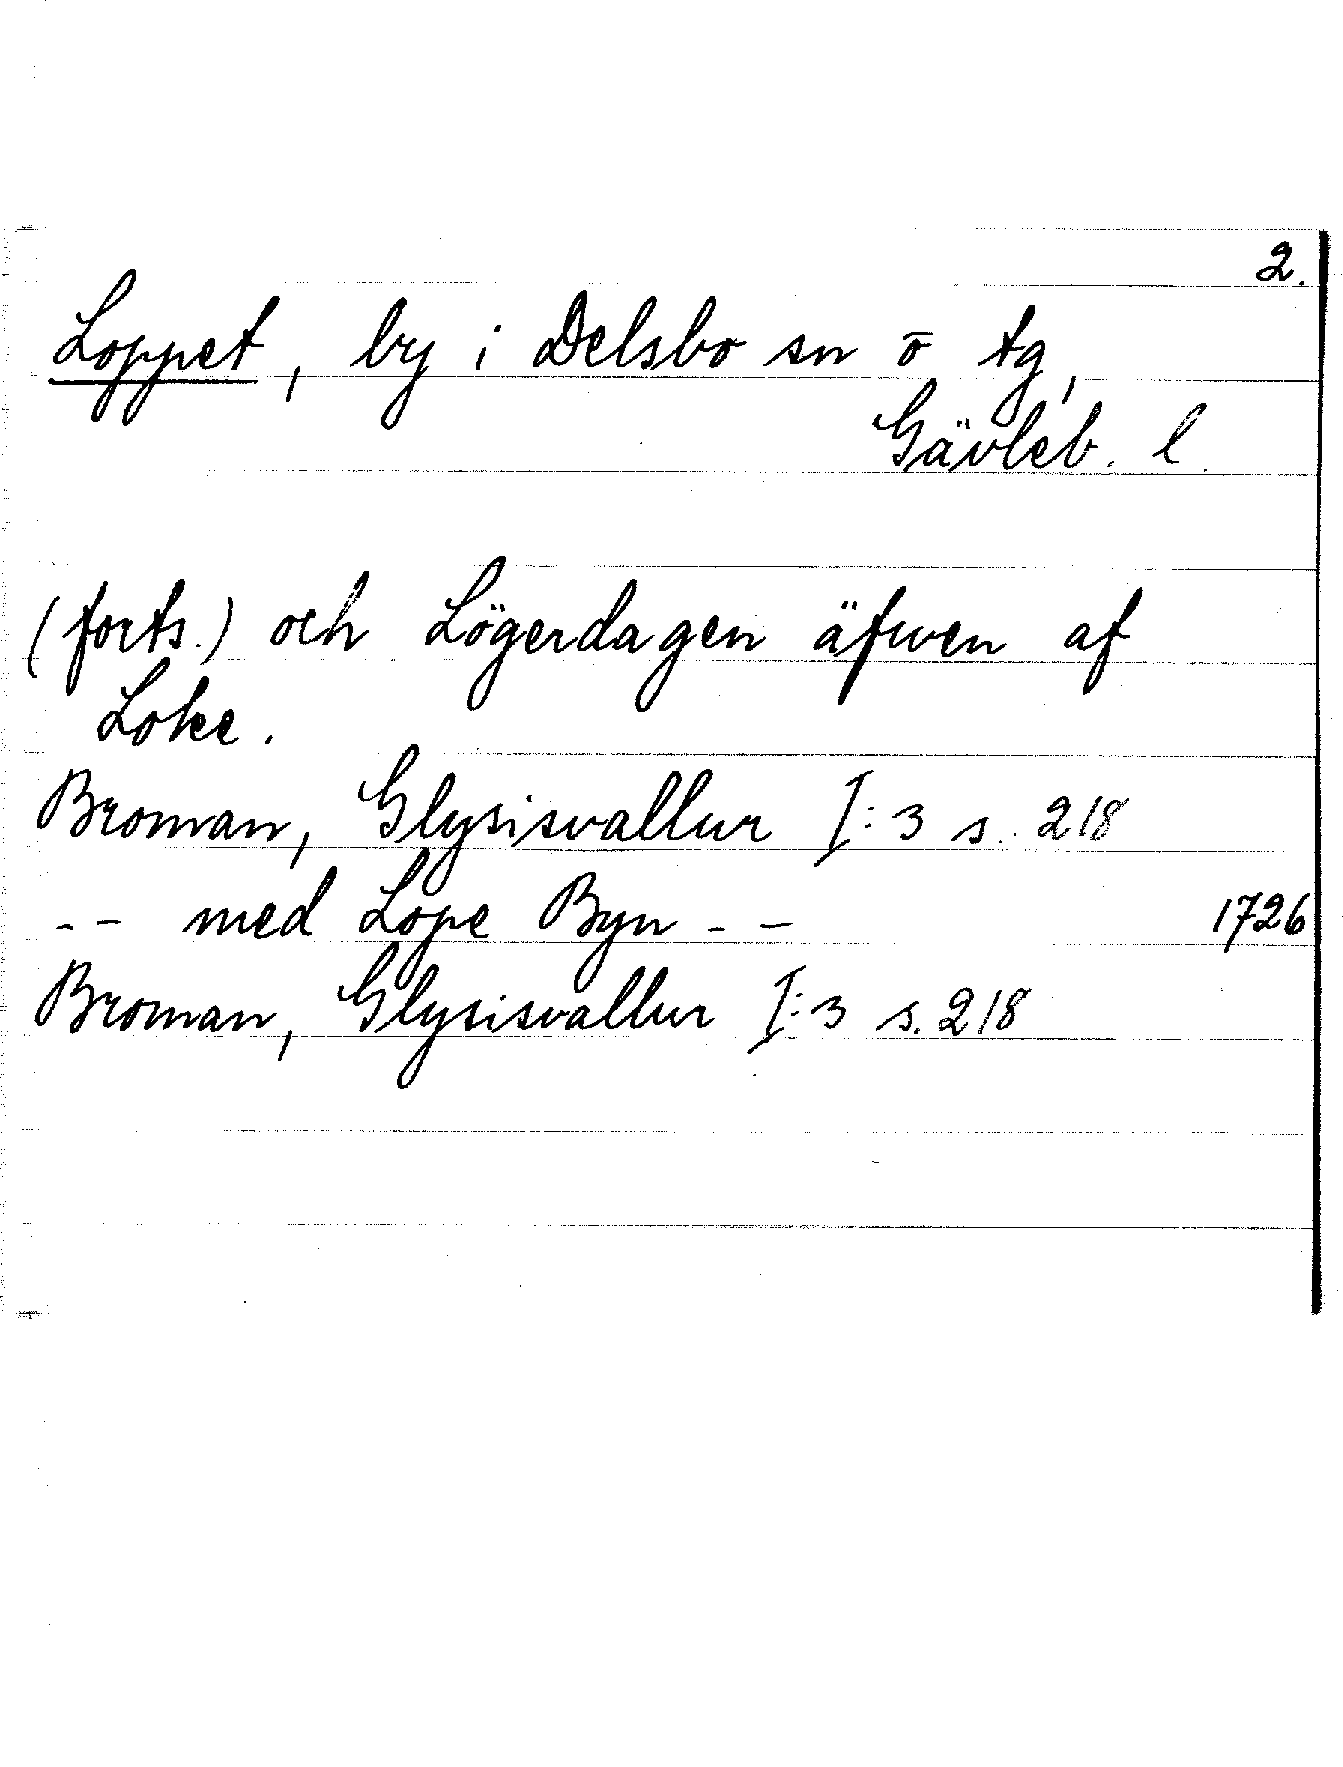 2.
Loppet, by i Delsbo sn o tg,
Gävleb. l.
(forts.) och Lögerdagen äfwen af
Loke.
Broman, Glysisvallur I:3 s. 218
-- med Lope Byn -- 1726
Broman, Glysisvallur I:3 s. 218